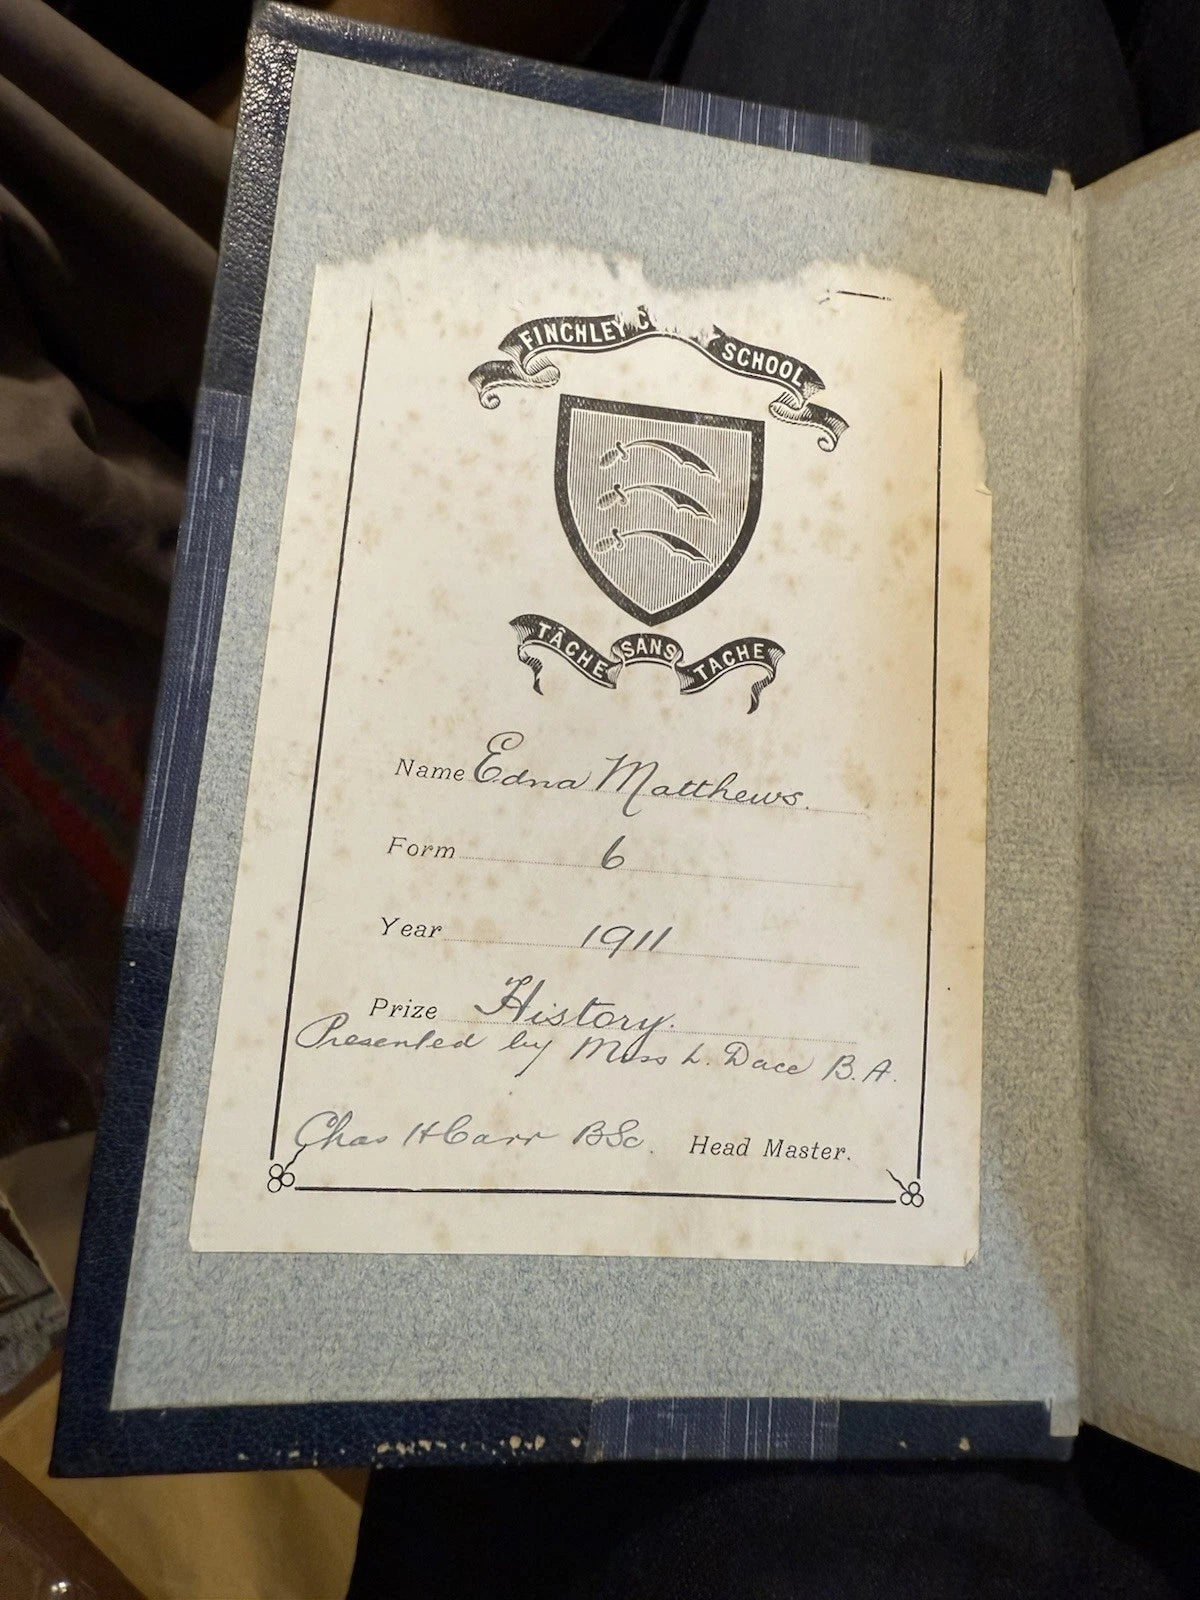 FINCHLEY C SCHOOL
TÂCHE SANS TACHE
Name Edna Matthews.
Form 6
Year 1911
Prize History.
Presented by Miss L. Dace B.A.
Chas H Carr BSc. Head Master.